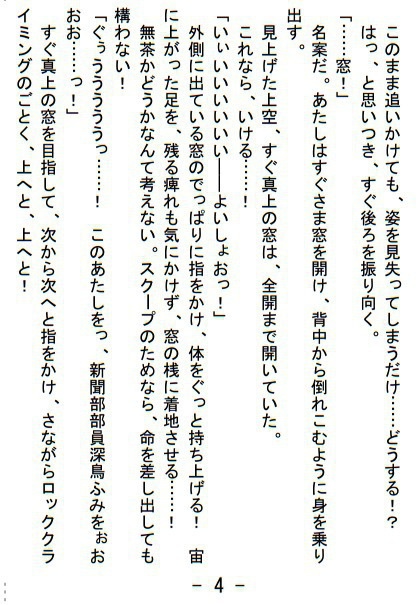 このまま追いかけても、姿を見失ってしまうだけ……どうする！？
はっ、と思いつき、すぐ後ろを振り向く。
「……窓！」
名案だ。あたしはすぐさま窓を開け、背中から倒れこむように身を乗り
出す。
見上げた上空、すぐ真上の窓は、全開まで開いていた。
これなら、いける……！
「いぃいいいいいい――よいしょおっ！」
外側に出ている窓のでっぱりに指をかけ、体をぐっと持ち上げる！　宙
に上がった足を、残る痺れも気にかけず、窓の桟に着地させる……！
無茶かどうかなんて考えない。スクープのためなら、命を差し出しても
構わない！
「ぐぅうううううっ……！　このあたしをっ、新聞部部員深鳥ふみをぉお
おお……っ！」
すぐ真上の窓を目指して、次から次へと指をかけ、さながらロッククラ
イミングのごとく、上へと、上へと！
- 4 -